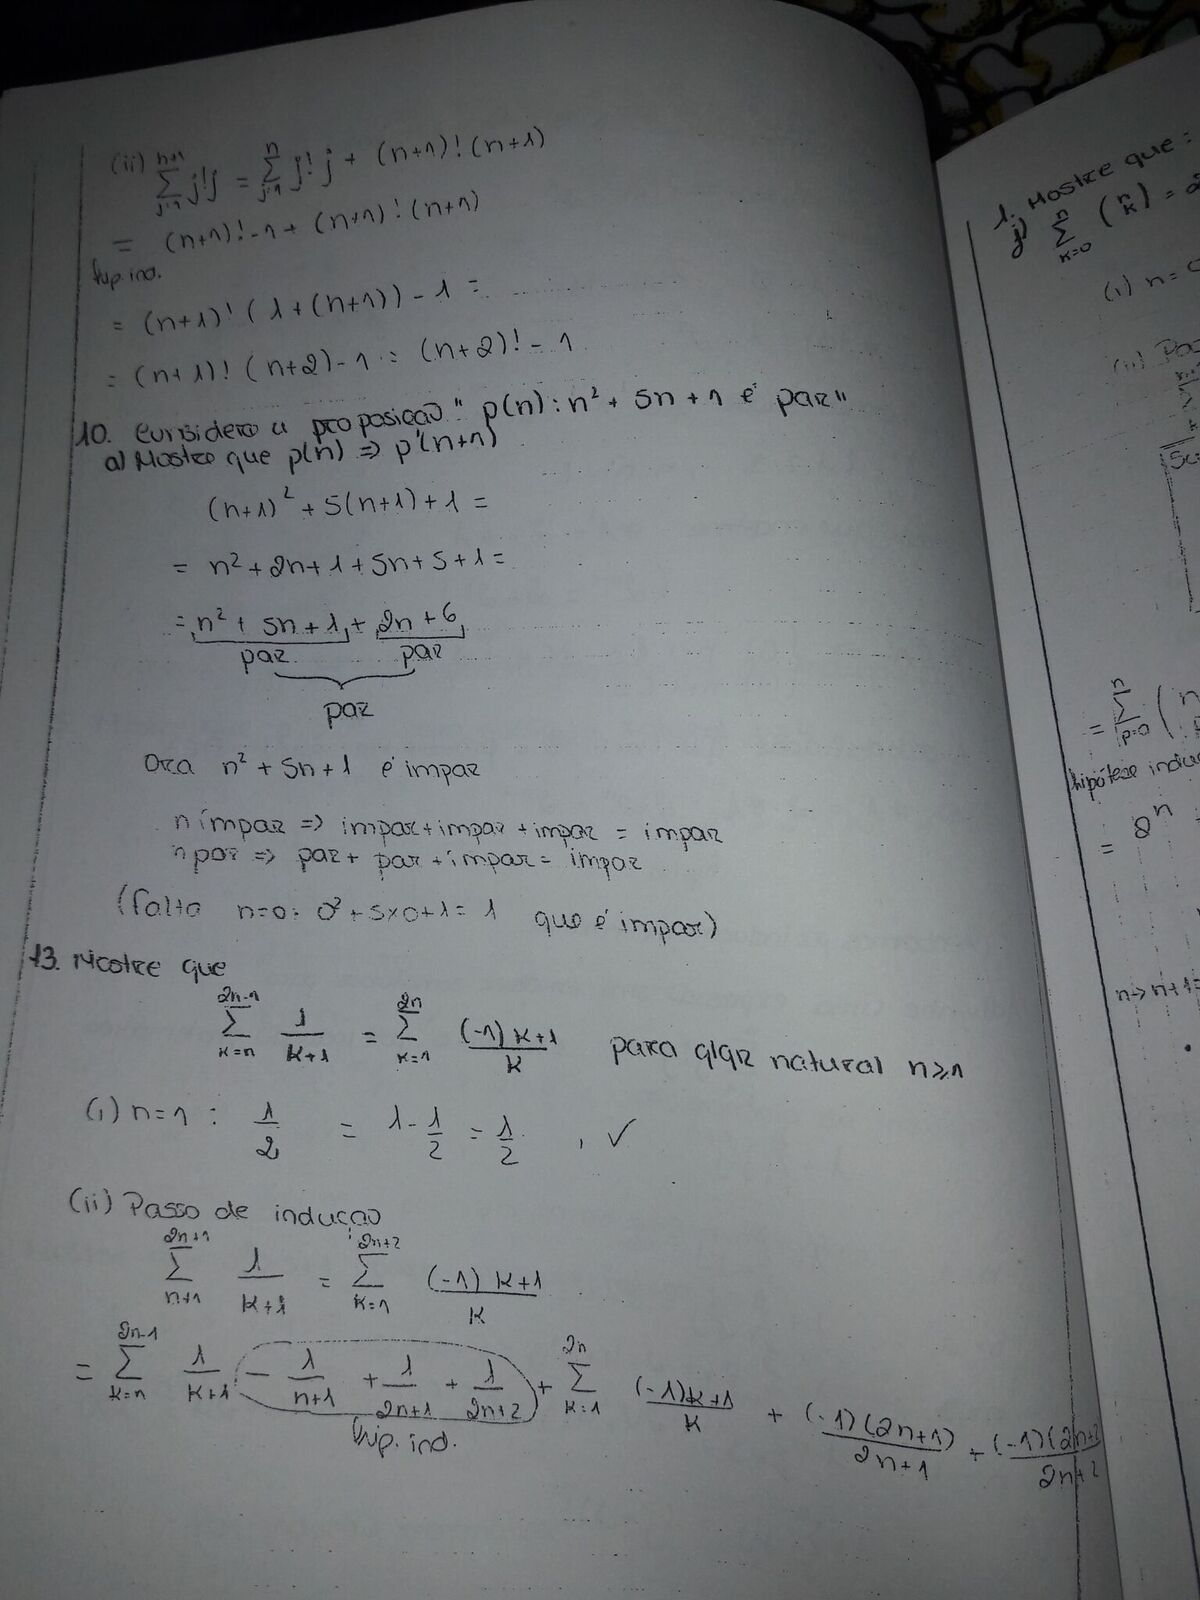 (ii) n+1 Σ j=1 j!j = n Σ j=1 j! j + (n+1)! (n+1)
= (n+1)! - 1 + (n+1)! (n+1)
hip. ind.
= (n+1)! (1 + (n+1)) - 1 =
= (n+1)! (n+2) - 1 = (n+2)! - 1
10. Considere a proposição " p(n): n² + 5n + 1 é par"
a) Mostre que p(n) => p(n+1)
(n+1)² + 5(n+1) + 1 =
= n² + 2n + 1 + 5n + 5 + 1 =
= n² + 5n + 1 + 2n + 6
par par
par
Ora n² + 5n + 1 é impar
n ímpar => impar + impar + impar = impar
n par => par + par + impar = impar
(falta n=0: 0² + 5x0+1 = 1 que é impar)
13. Mostre que
2n-1 Σ k=n 1/k+1 = 2n Σ k=1 (-1)k+1/k para qlqr natural n≥1
(i) n=1 : 1/2 = 1 - 1/2 = 1/2 , ✓
(ii) Passo de indução
2n+1 Σ n+1 1/k+1 = 2n+2 Σ k=1 (-1) k+1/k
= 2n-1 Σ k=n 1/k+1 - 1/n+1 + 1/2n+1 + 1/2n+2 + 2n Σ k=1 (-1)k+1/k + (-1)(2n+1)/2n+1 + (-1)(2n+2/2n+2
hip. ind.
1. Mostre que :
j) n Σ k=0 (n k) = 2
(i) n=
(ii)
= n Σ p=0 (n
hipótese indu
= 2n
n→n+1=